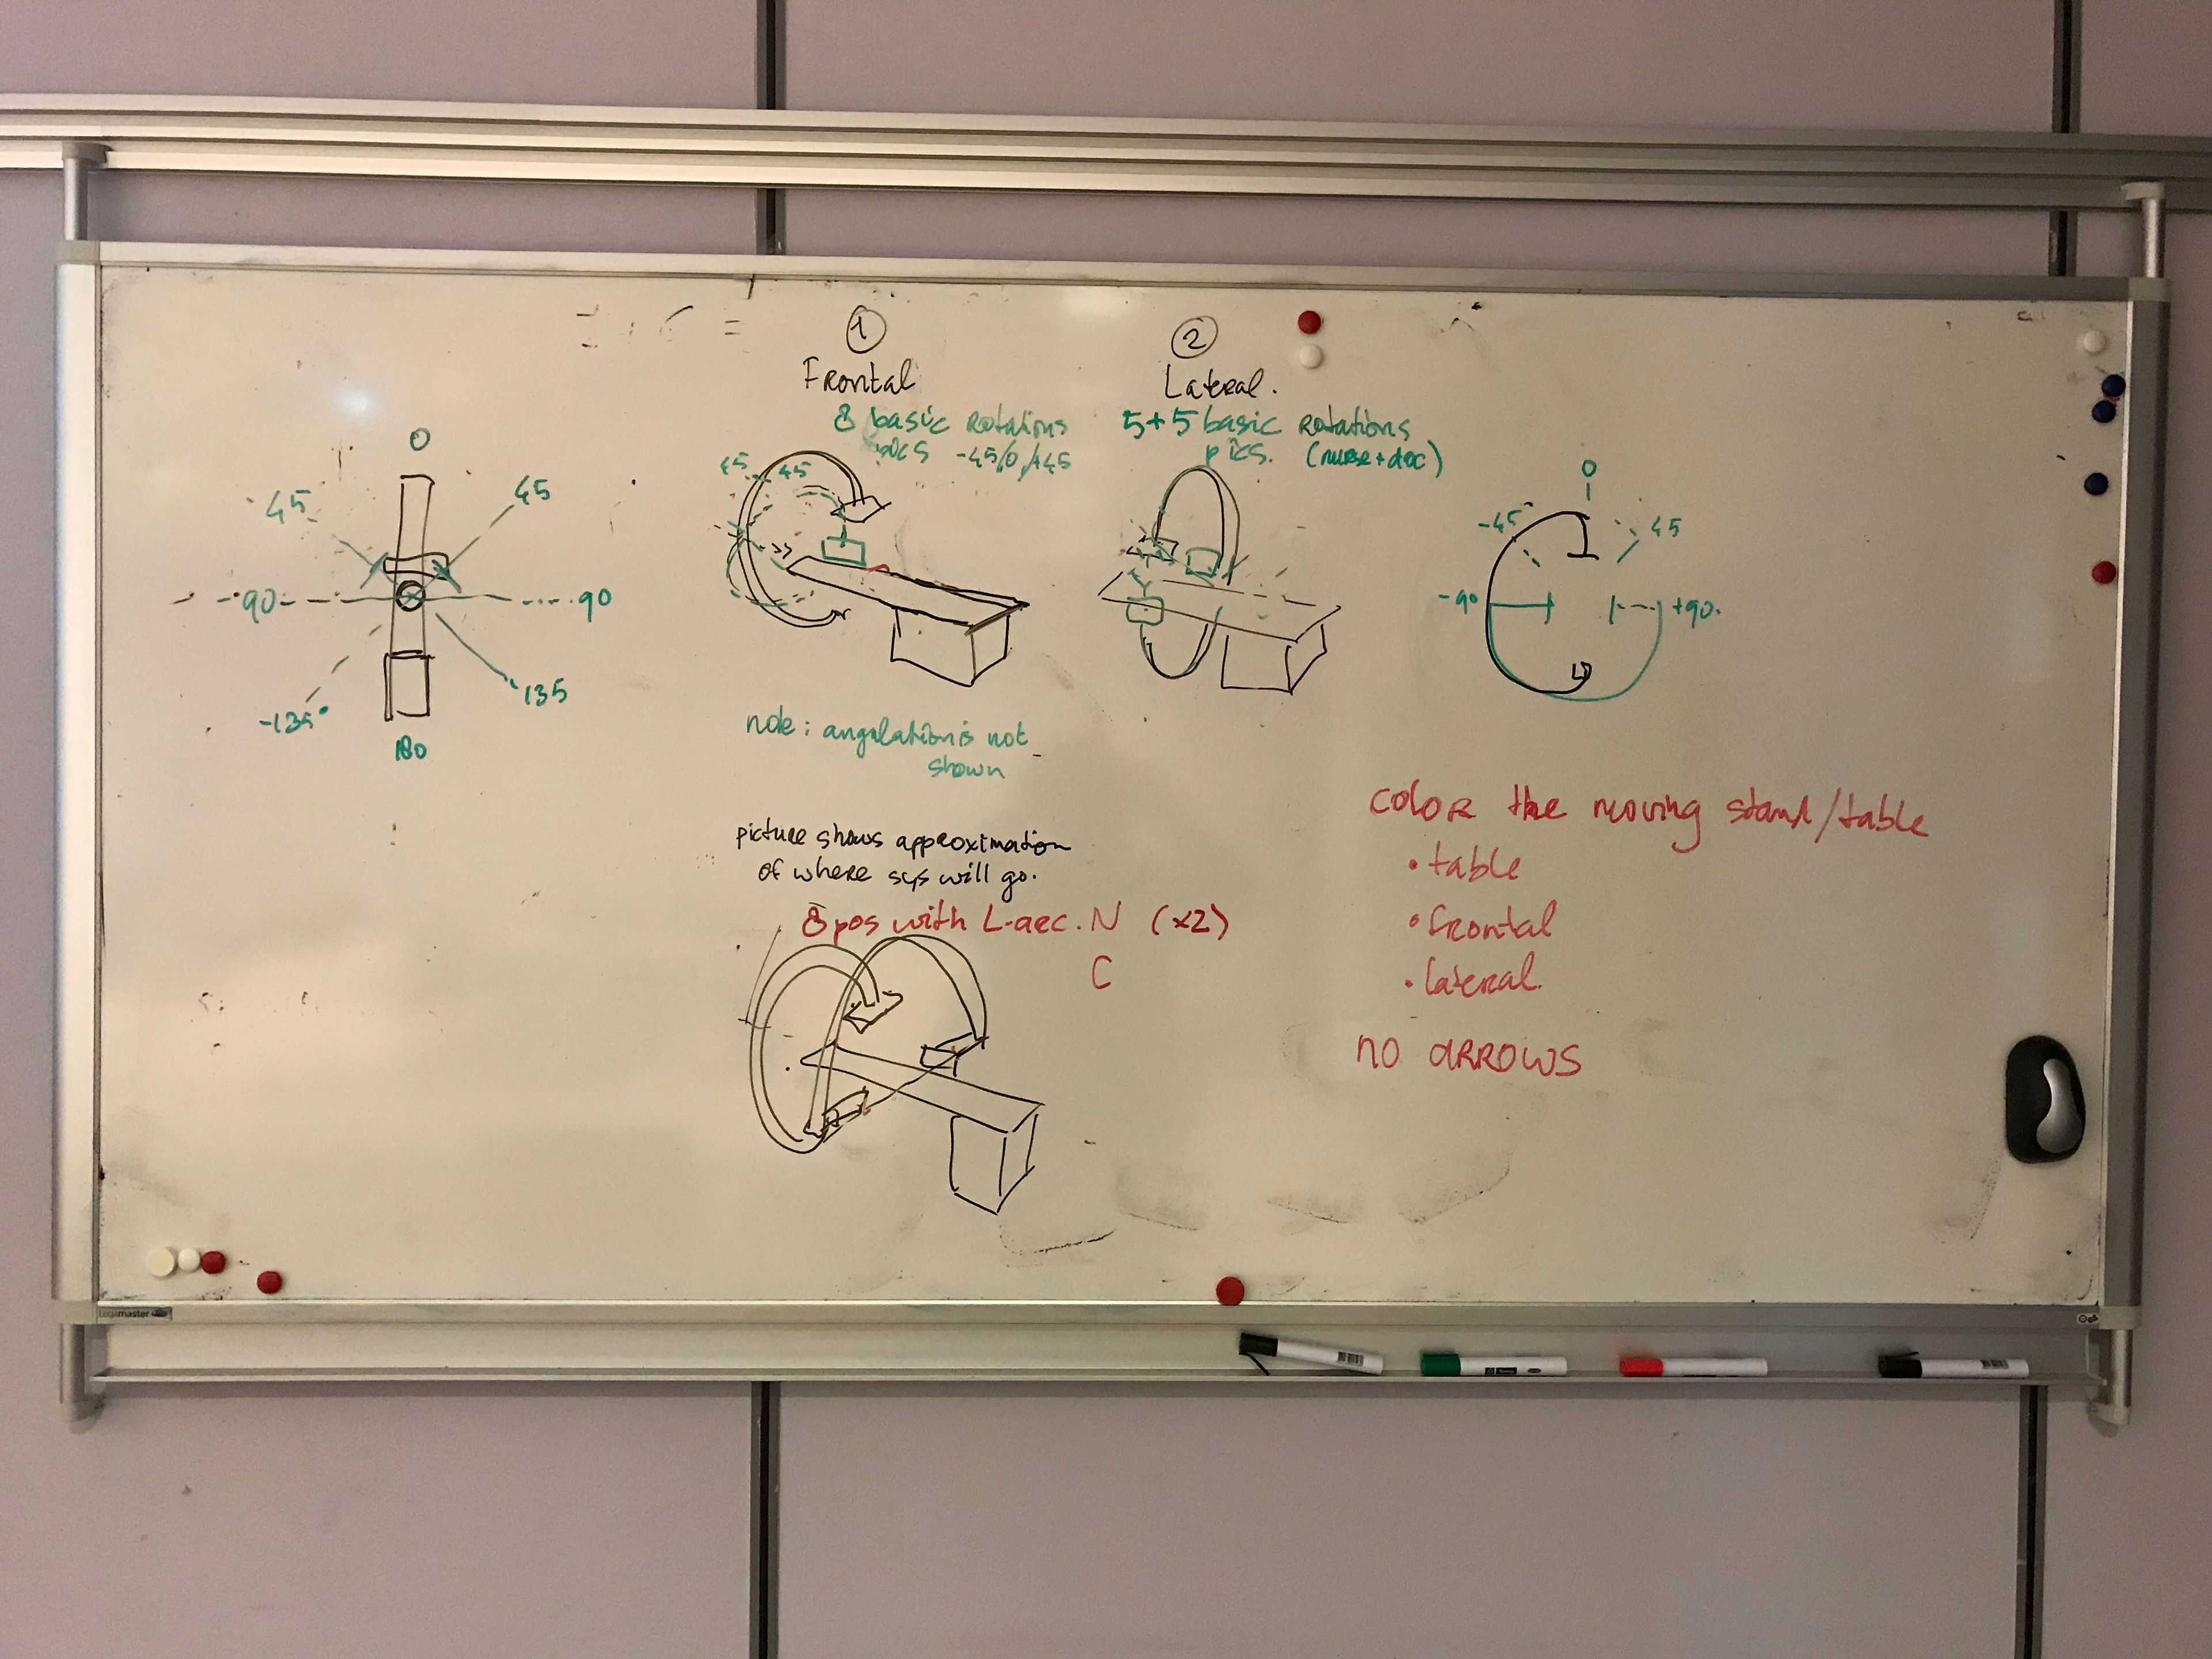 1
Frontal
8 basic rotations
pics -45/0/+45
45 45
2
Lateral.
5+5 basic rotations
pics. (nurse+doc)
0
45
45
-90
90
-135°
135
180
0
-45
45
-90
+90.
note: angulation is not
shown
picture shows approximation
of where sys will go.
8 pos with L-arc. N (x2)
C
color the moving stand/table
• table
• frontal
• lateral.
no arrows
Legamaster